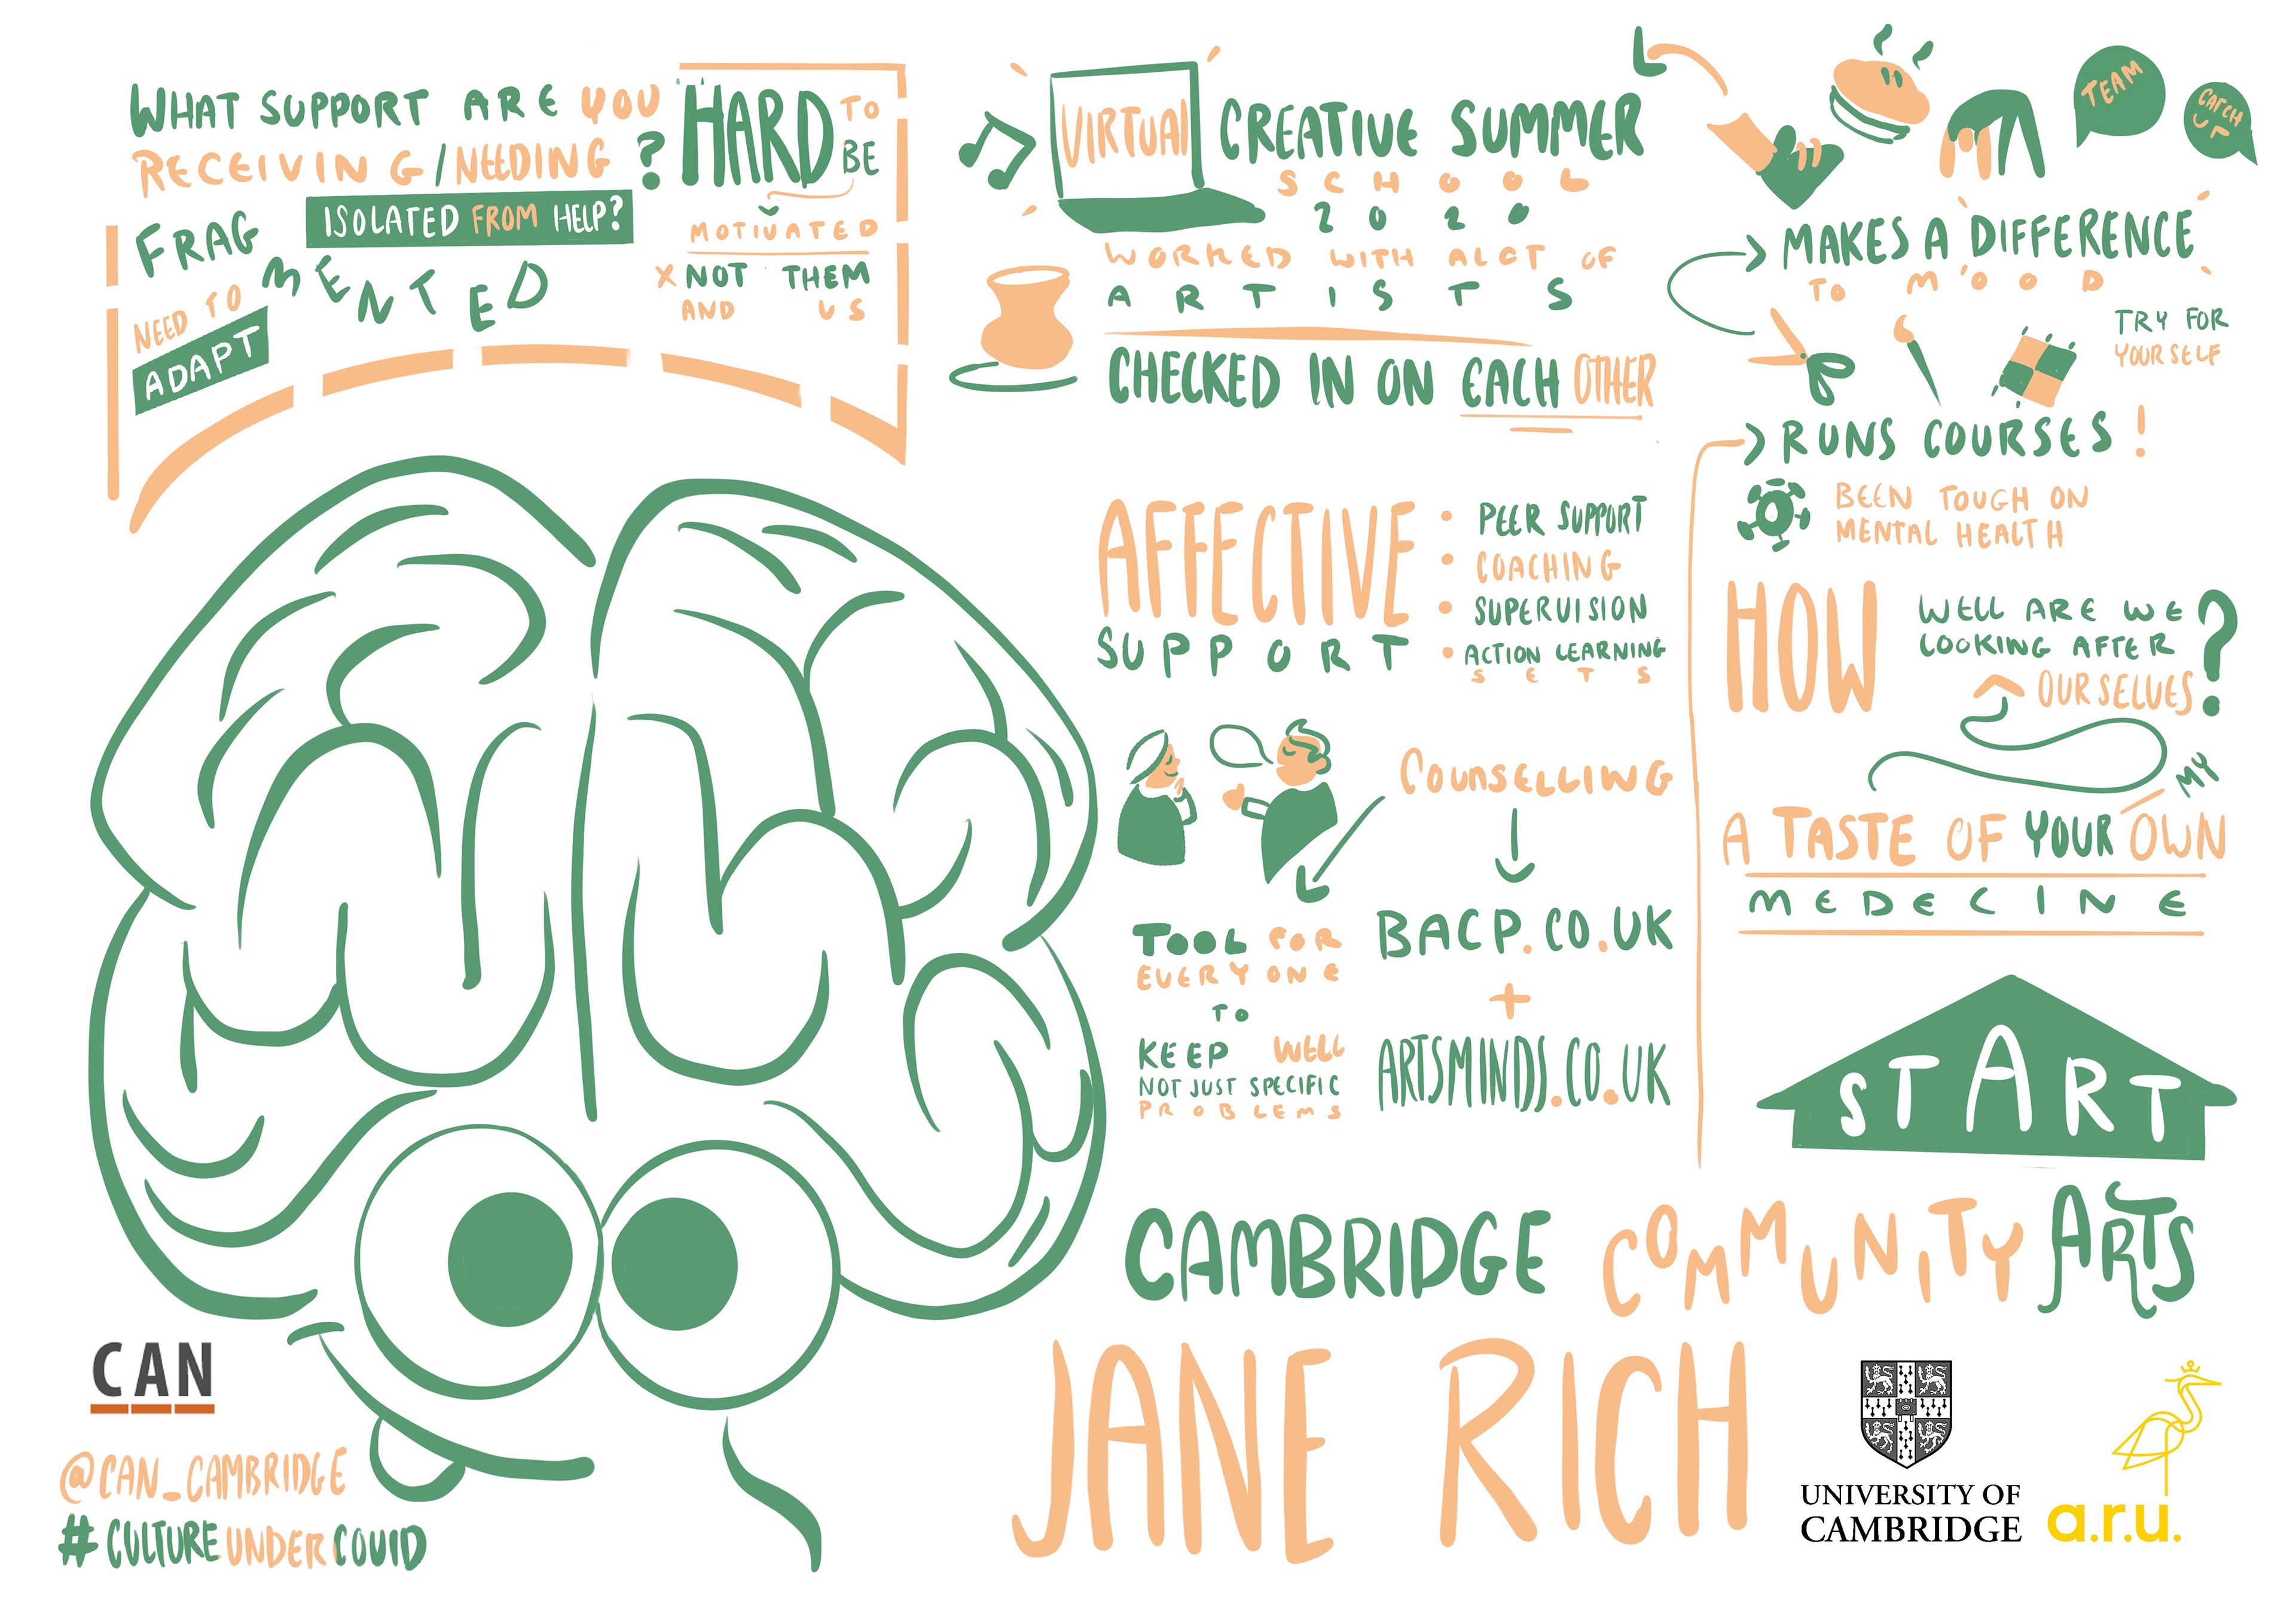 WHAT SUPPORT ARE YOU
RECEIVING/NEEDING?
ISOLATED FROM HELP?
FRAGMENTED
NEED TO
ADAPT
HARD TO
BE
MOTIVATED
X NOT THEM
AND US
VIRTUAL CREATIVE SUMMER
SCHOOL
2020
WORKED WITH ALOT OF
ARTISTS
CHECKED IN ON EACH OTHER
TEAM
CATCH
MAKES A DIFFERENCE
TO MOOD
TRY FOR
YOURSELF
RUNS COURSES!
BEEN TOUGH ON
MENTAL HEALTH
AFFECTIVE
SUPPORT
• PEER SUPPORT
• COACHING
• SUPERVISION
• ACTION LEARNING
SETS
HOW WELL ARE WE
LOOKING AFTER
OURSELVES?
MY
A TASTE OF YOUR OWN
MEDECINE
COUNSELLING
BACP.CO.UK
+
ARTSMINDS.CO.UK
TOOL FOR
EVERYONE
TO
KEEP WELL
NOT JUST SPECIFIC
PROBLEMS
START
CAMBRIDGE COMMUNITY ARTS
JANE RICH
CAN
@CAN_CAMBRIDGE
#CULTUREUNDERCOVID
UNIVERSITY OF
CAMBRIDGE
a.r.u.